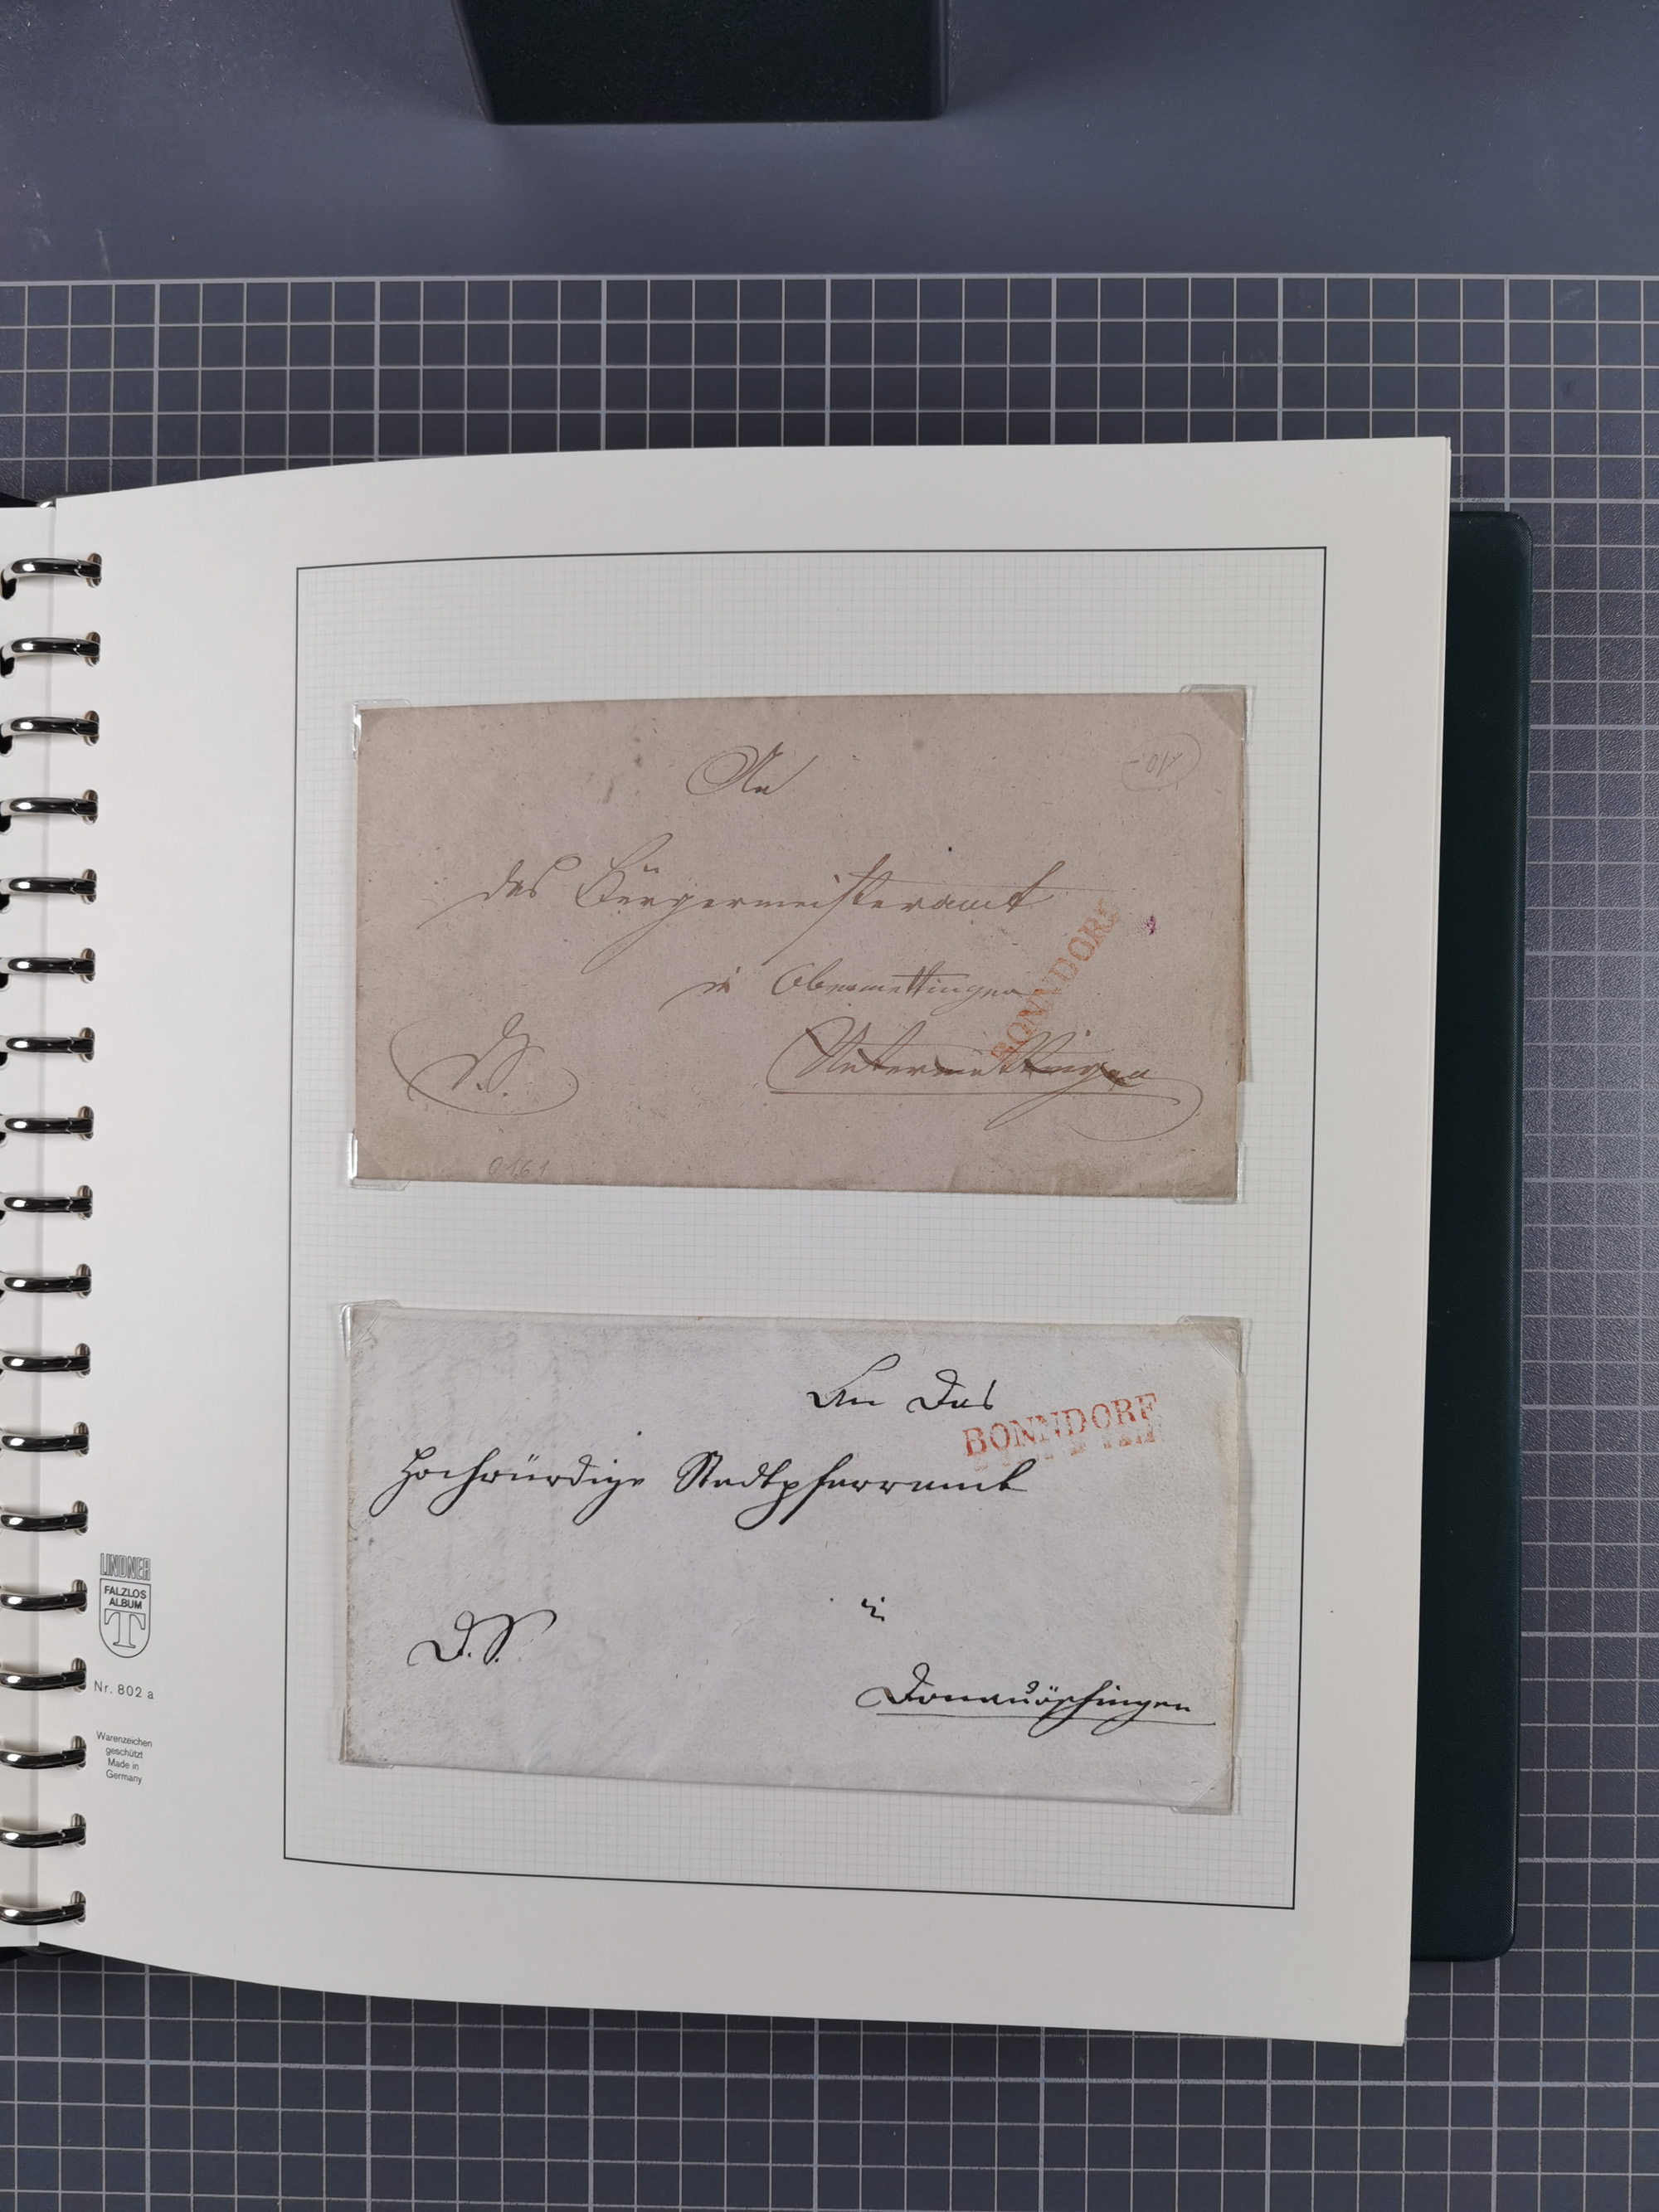 An
das Bürgermeisteramt
in Obermettingen
Untermettingen
D.S.
BONNDORF
0161
An Das
BONNDORF
Hochwürdige Stadtpfarramt
in
D.S.
Donauöschingen
LINDNER
FALZLOS
ALBUM
T
Nr. 802 a
Warenzeichen
geschützt
Made in
Germany